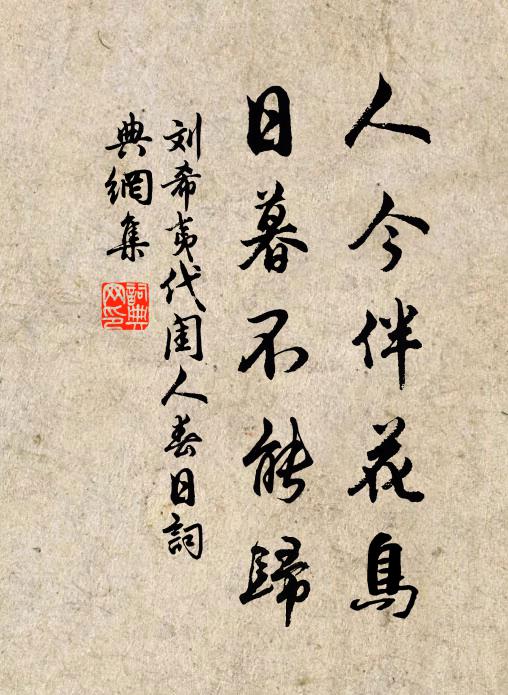 人今伴花鳥
日暮不能歸
刘希夷代闺人春日詞
典網集
詞典網印